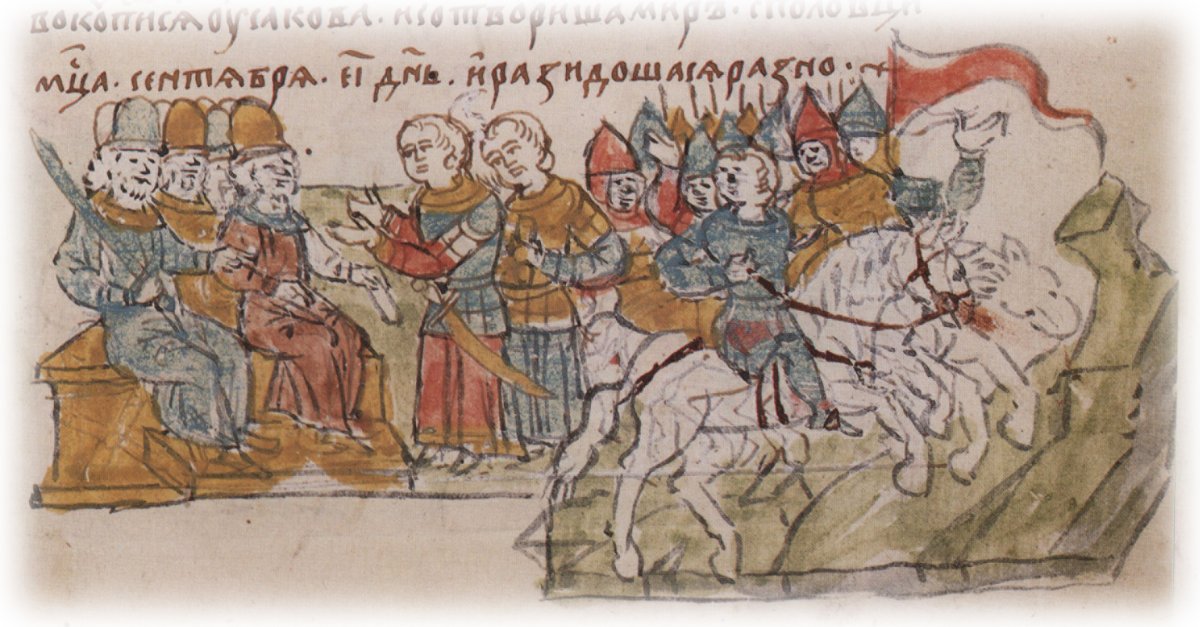 вокописѧоусакова · исотворишамиръ · споловци
мц҃а · сентѧбрѧ · еı҃ дн҃ь · и҆разидошасѧразно ·